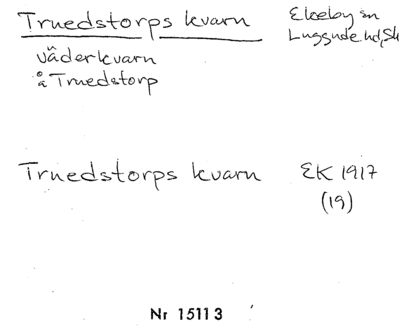 Truedstorps kvarn
Ekeby sn
Luggude hd, Sk
väderkvarn
å Truedstorp
Truedstorps kvarn
EK 1917
(19)
Nr 15113